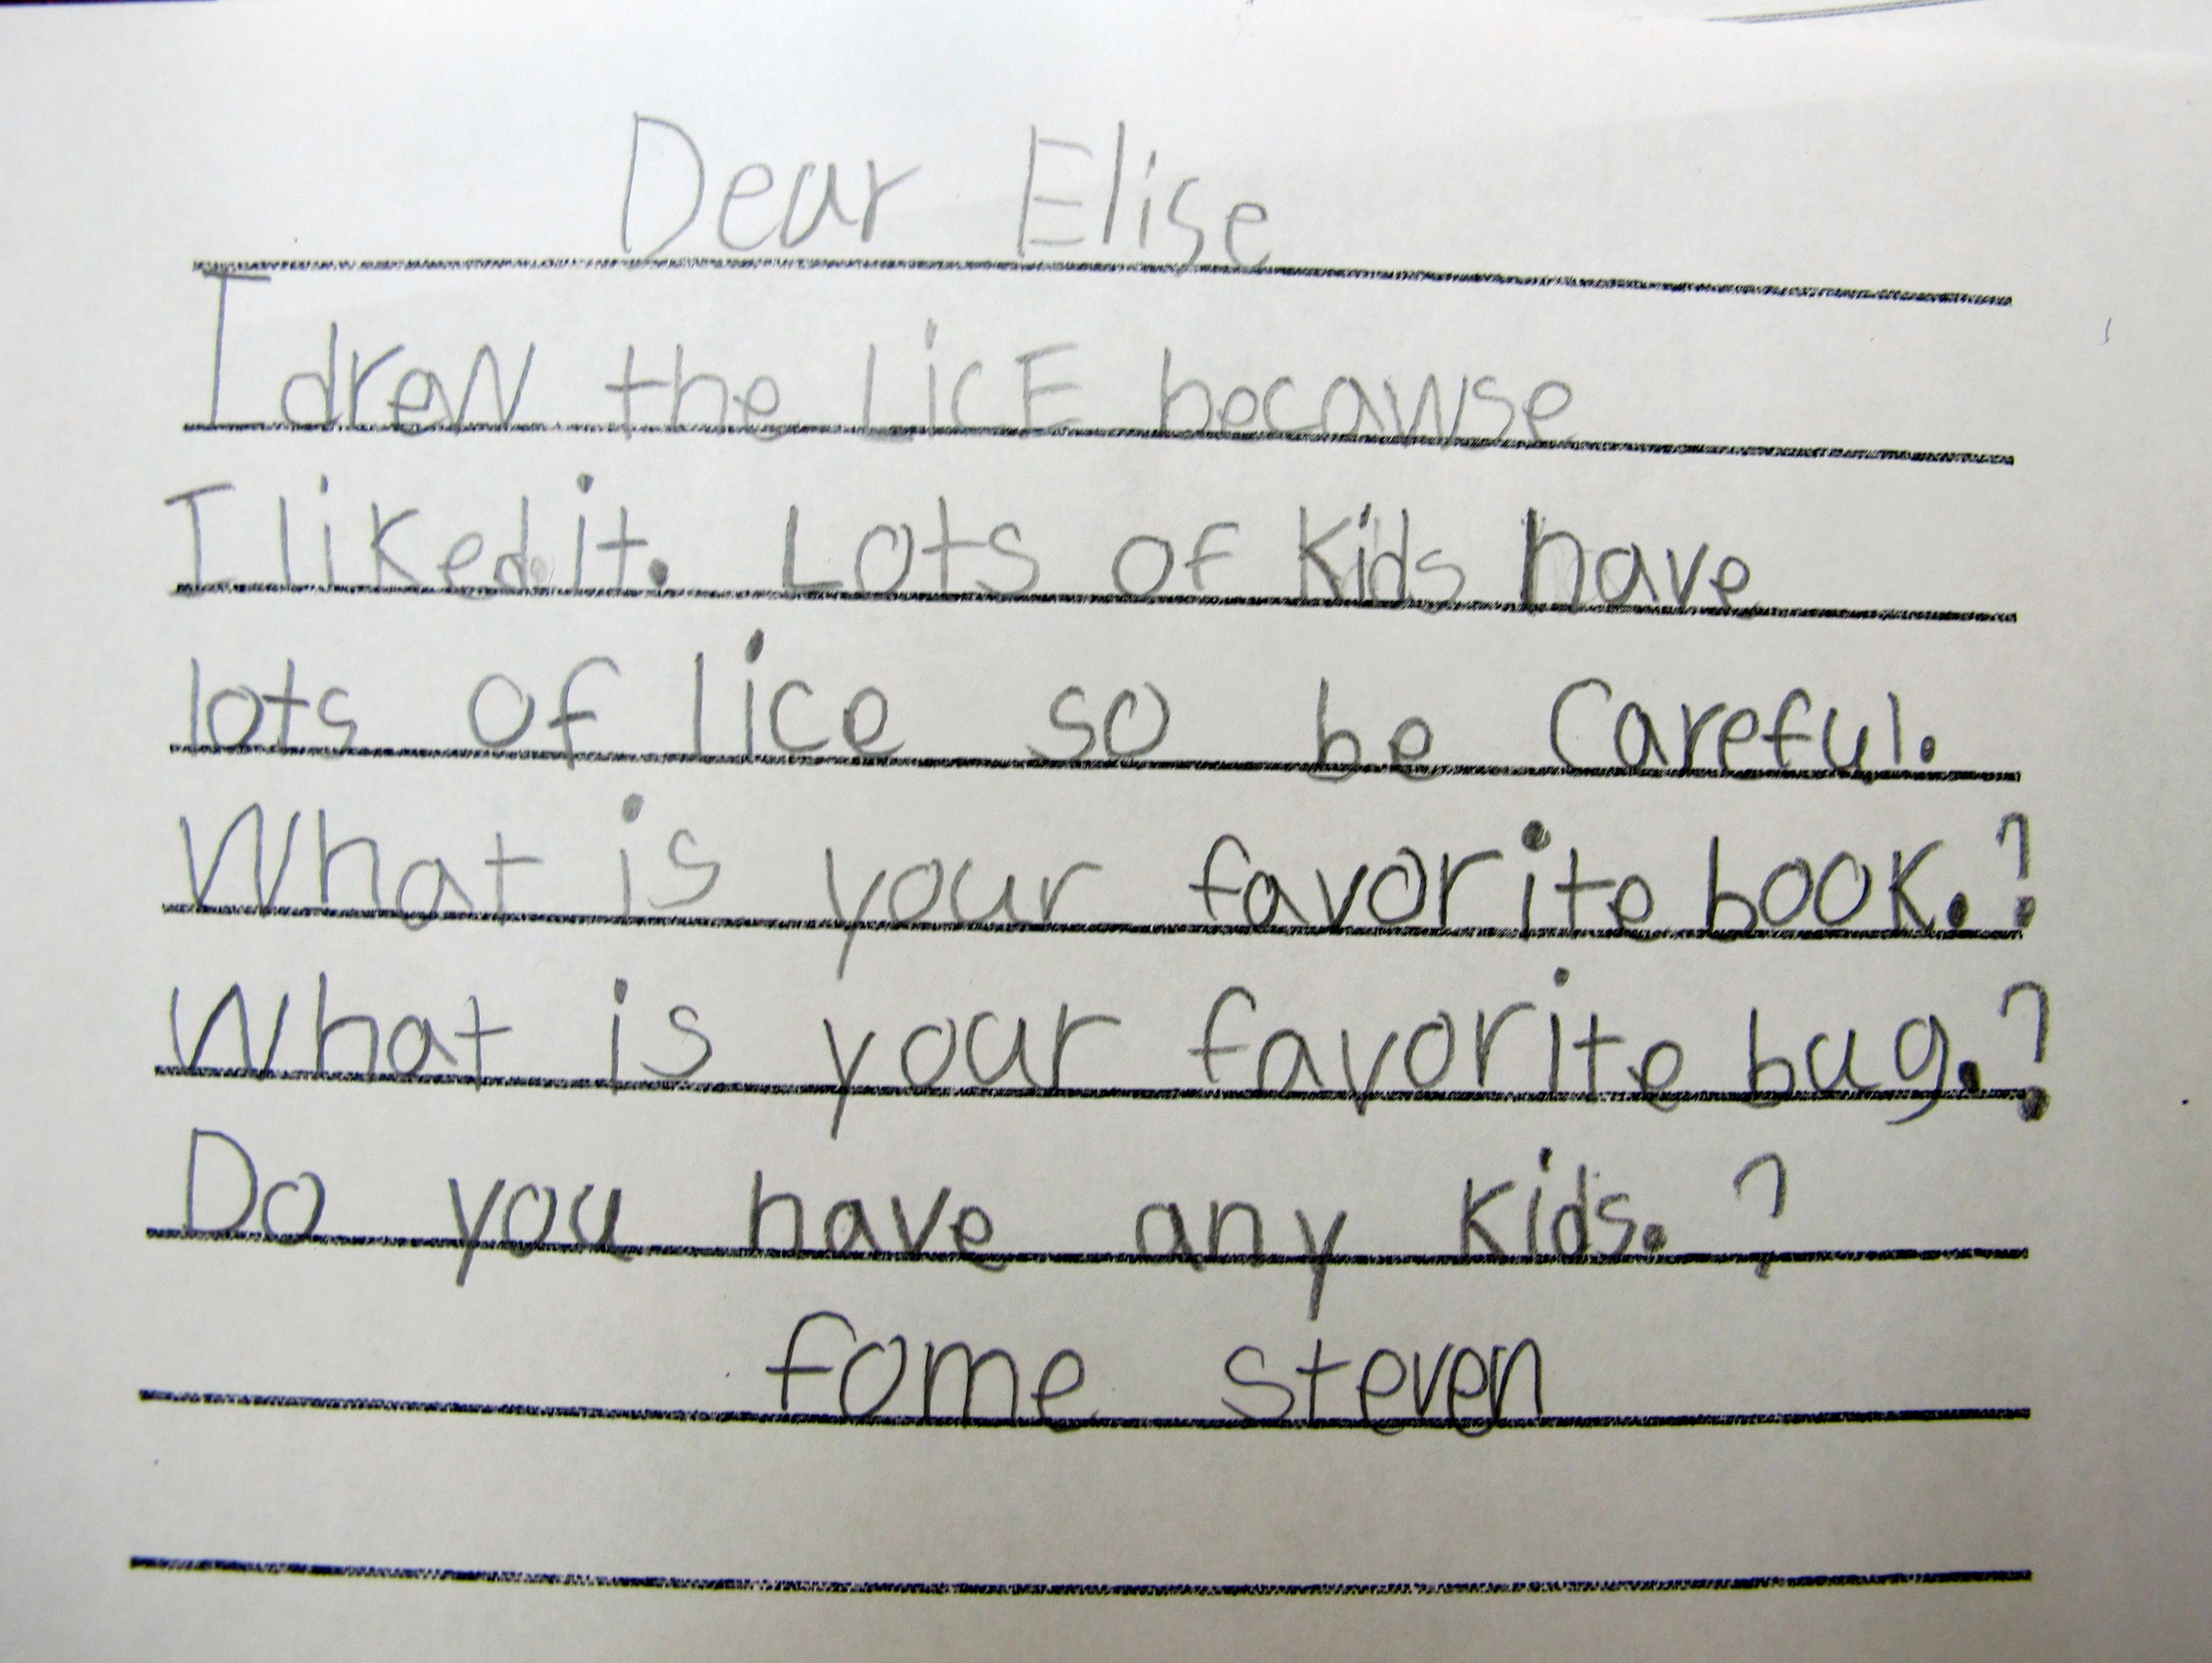 Dear Elise
I drew the LicE becawse
I liked it. Lots of Kids have
lots of lice so be Careful.
What is your favorite book.?
What is your favorite bug.?
Do you have any Kids. ?
fome steven